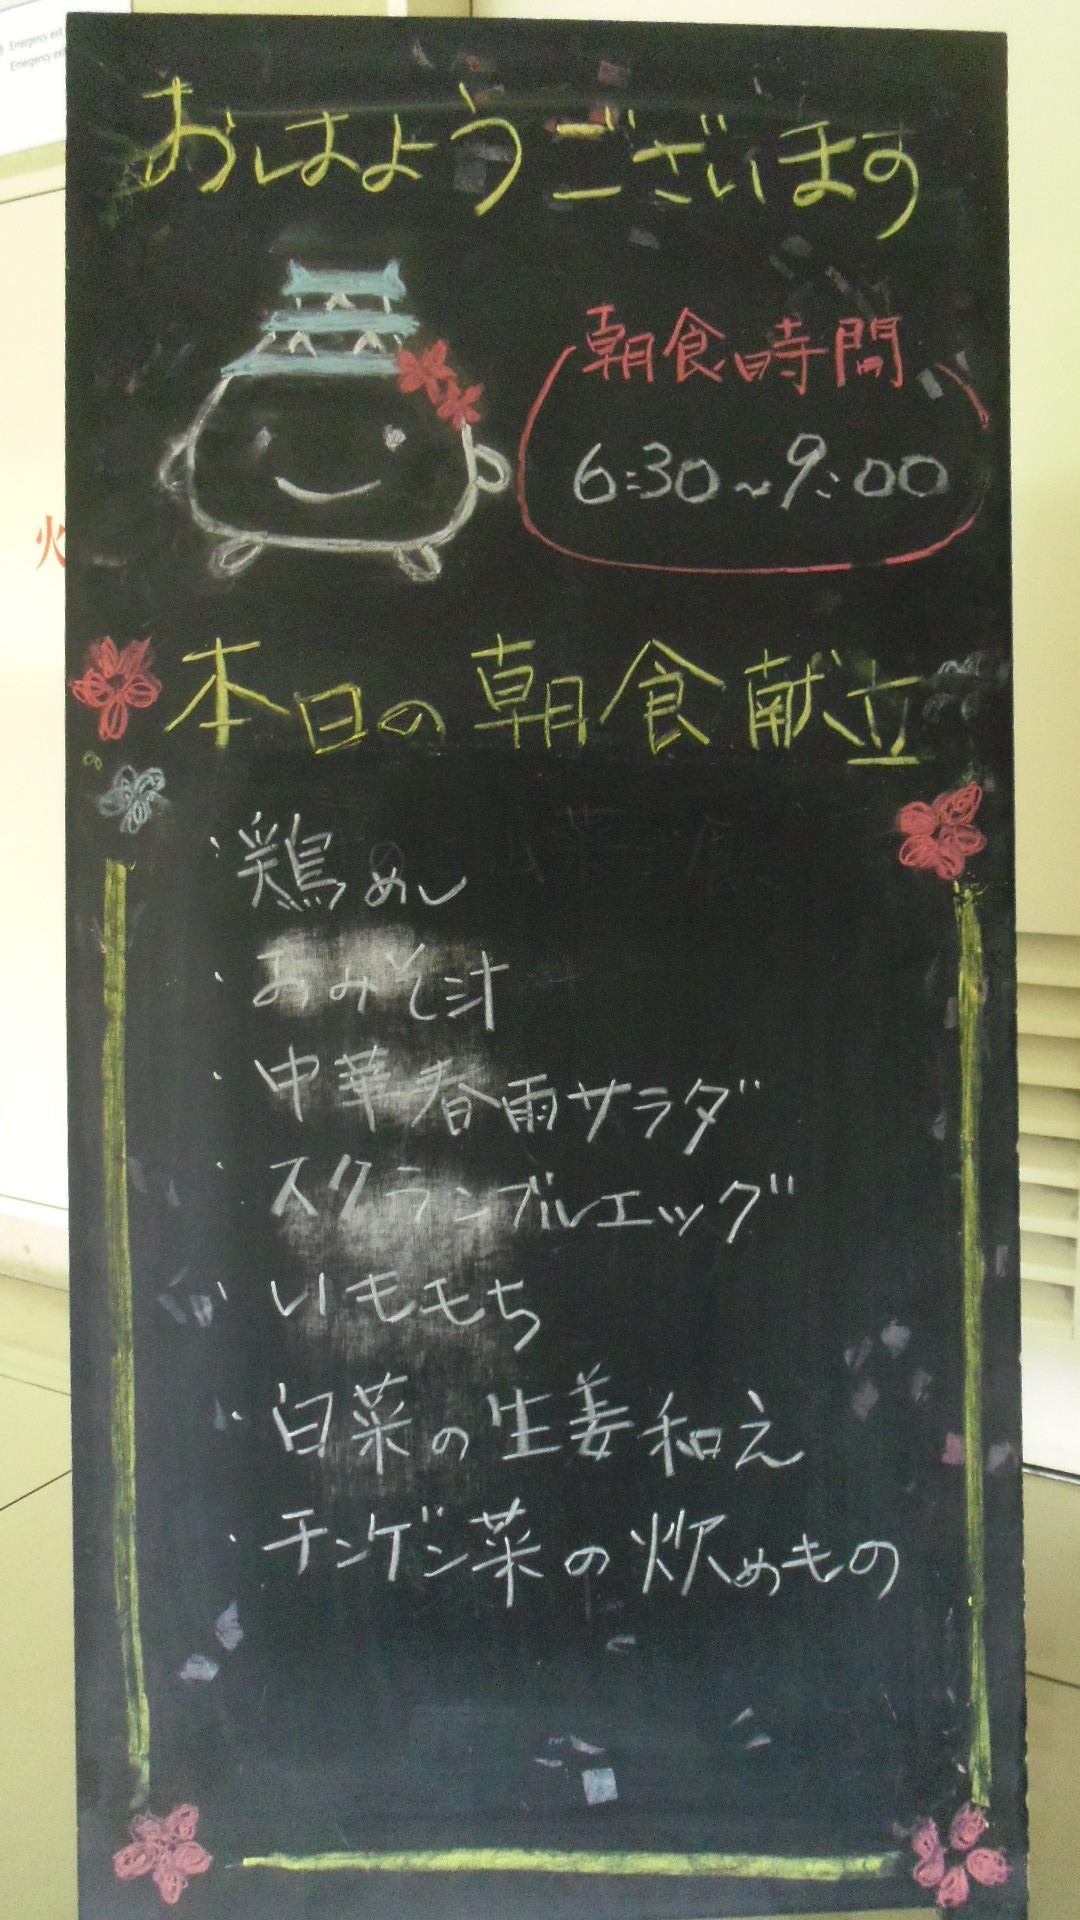 Emergency exit
Emergency exit
おはようございます
朝食時間
6:30~9:00
火
本日の朝食献立
・鶏めし
・おみそ汁
・中華春雨サラダ
・スクランブルエッグ
・いももち
・白菜の生姜和え
・チンゲン菜の炒めもの